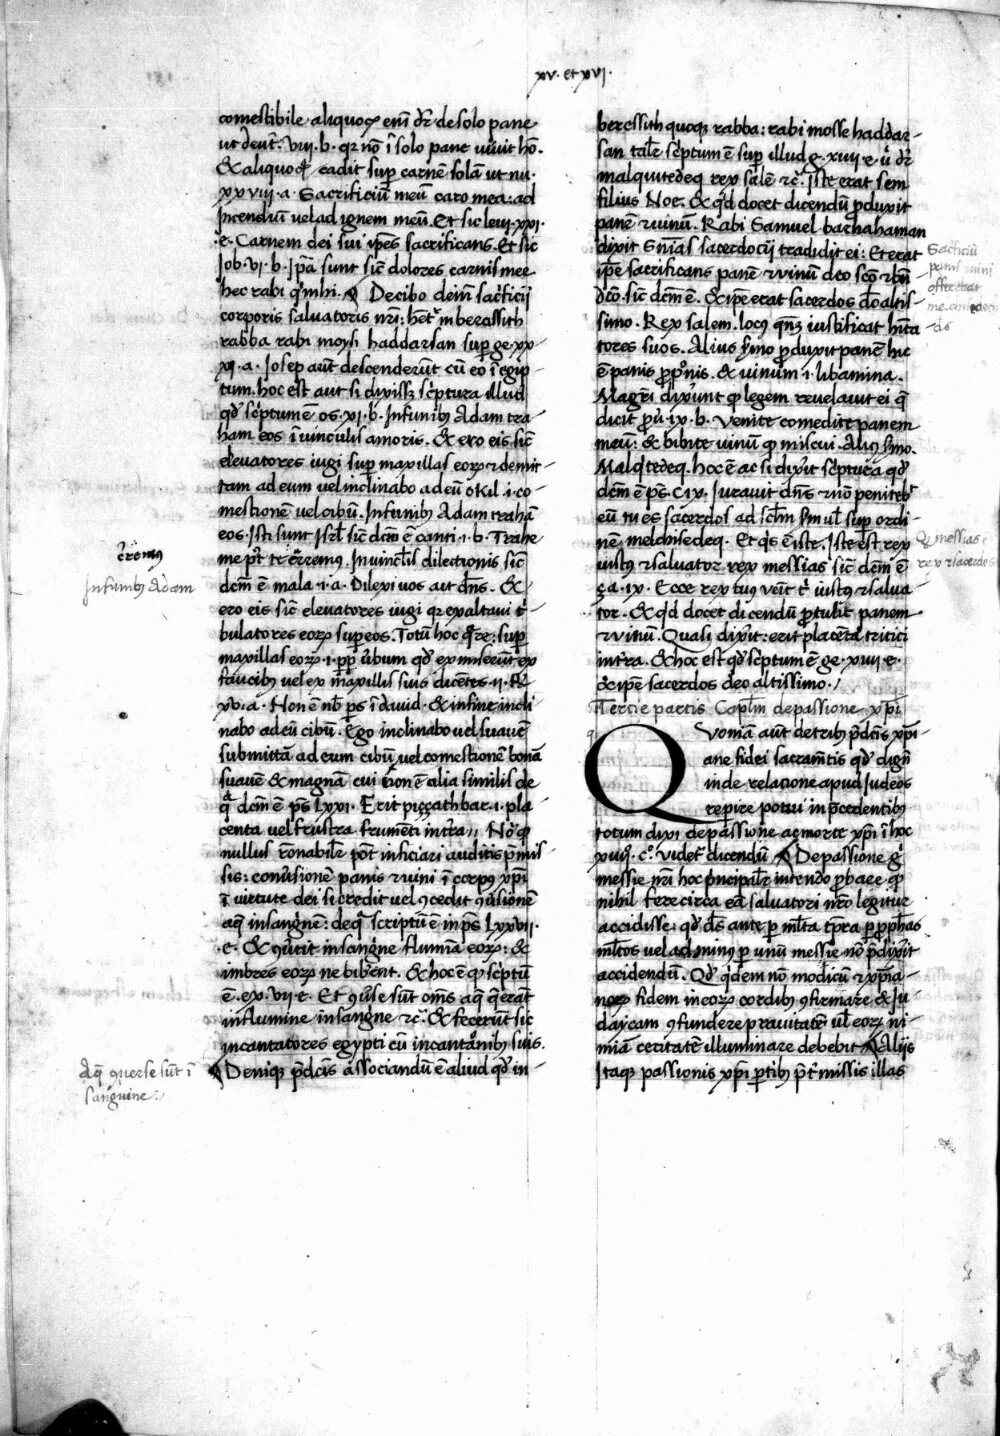 xv. et xvi.
comestibile aliquoꝫ eni͂ dr̄ de solo pane
ut deut̄. viii. b. qꝛ nō ī solo pane vivit hō.
& aliquoꝫ cadit sup̱ carnē solā ut nu.
xxviii. a. Sacrificiū meū caro mea: ad
Incendiū vel ad ignem meū. Et sic levi. xxi.
e. Carnem dei sui ip̄es sacrificans. Et sic
Job. vi. b. ip̄a sunt sic̄ dolores carnis mee
hec rabi
De cibo
corporis salvatoris nr̄i: het͛ in beressith
rabba rabi moysi haddarsan sup̱ ge. xx
xi. a. Iosep aut̄ descenderūt cū eo ī egip
tum. hoc est aut si dixissꝫ sc͛ptura illud
qd̓ sc͛ptum ē os. xi. b. In funibꝫ Adam tra-
ham eos ī vinculis amoris. & ero eis sic̄
elevatores iugi sup̱ maxillas eoꝝ ⁊ demit-
tam ad eum vel inclinabo ad eū okil. i. co-
mestionē vel cibū. In funibꝫ Adam trahā
eos. Isti sunt isrl̄ sic̄ dc̄m ē canti. i. b. Trahe
me p̱t te c͛remus. In vinc̄lis dilectionis sic̄
dc̄m ē mala. i. a. Dilexi vos aut dn̄s. &
ero eis sic̄ elevatores iugi qꝛ exaltavi t͛-
bulatores eoꝝ sup̱ eos. Totū hoc q͛re: sup̱
maxillas eoꝝ. i. pp̱ v̄bum qd̓ ex miserūt ex
faucibꝫ vel ex maxillis suis dicētes
xv. a. Non ē nb̄ p̄s ī david. & in fine incli
nabo ad eū cibū. Ego inclinabo vel suavē
submittā ad eum cibū vel comestionē bonā
suavē & magnam cui non ē alia similis de
q̄ dc̄m ē p̄s lxxi. Erit piççath bar. i. pla
centa vel frustra frumēti in t͛ra // Nō q̱
nullus rōnabilr̄ pōt inficiari auditis p̄mis
sis: conv̓sionē panis ⁊ vini ī corpꝫ xp̄i
ī virtute dei si credit vel ꝯcedit ꝯv̓sionē
aq̄ in sangnē: de qua scriptū ē in p̄s lxxvii.
e. & ꝯv͛tit in sangnē flumīa eoꝝ: &
imbres eoꝝ ne bibēnt. & hoc ē q̱ sc͛ptū
ē. ex. vii. e. Et ꝯv̓se sūt om̄s aq̄ q̄ erāt
in flumine in sangnē ⁊c̄. & fecerūt sic
incantatores egypti cū incantatōnibꝫ suis.
Deniqꝫ p̄dc̄is associandū ē aliud qd̓ in-
c͛remus
In funibꝫ Adam
Aq̄ ꝯverse sūt ī
sanguine.
beressith quoqꝫ rabba: rabi mosse haddar-
san tal͛r sc͛ptum ē sup̱ illud g. xiiii. e. u͛ dr̄
malquitedeq rex salē ⁊c̄. Iste erat sem
filius Noe. & q͛d docet dicendū p̱duxit
panē ⁊ vinum. Rabi Samuel barnahaman
dixit sn̄ias sacerdocii tradidit ei: Et erat
ip̄e sacrificans panē ⁊ vinum deo scō ⁊ bn̄
dc̄o. sic̄ dc̄m ē. & ip̄e erat sacerdos deo altis-
simo. Rex salem. locꝫ iustificat hīta
tores suos. Alius s͛mo p̱duxit panē hic
ē panis p̱poīs. & vinum. i. libamina.
Magr̄i dix̄unt q̱ legem revelavit ei q̄
dicit p̱v͛. ix. b. Venite comedite panem
meū: & bibite vinū q̱ miscui. Aliꝫ s͛mo.
Malq͛tedeq. hoc ē ac si dix̄it sc͛ptura qd̓
dc̄m ē p̄s. cix. Iuravit dn̄s ⁊ nō penitebt̄
eū tu es sacerdos ad
nē melchisedeq. Et q͛s ē iste. Iste est rex
iustꝫ ⁊ salvator rex messias sic̄ dc̄m ē
ça. ix. Ecce rex tuꝫ veīt t͛ iustꝫ ⁊ salva
tor. & q͛d docet dicendū p̱tulit panem
⁊ vinū. Quasi dix̄it: erit placēta tritici
in t͛ra. & hoc est qd̓ sc͛ptum ē ge. xiiii. e.
& ip̄e sacerdos deo altissimo. /
Tercie partis Cap̄lm de passione xp̄i
Quoniā aūt de tribꝫ p̄dc̄is xp̄i-
ane fidei sacram̄tis qd̓ dign̄
inde relacione apud Judeos
rep̱ire potui in p̱cedentibꝫ
totum dixi de passione ac morte xp̄i ī hoc
xviꝯ. cꝯ. videt͛ dicendū De passione g͛
messie nr̄i hoc p͛ncipal͛r intendo p̱bare q̱
nihil fere circa eā salvatori nr̄o legitur
accidisse: qd̓ ds̄ ante p̱ ml̄ta tp̱ra p̱ p̱ph̄as
ml̄tos vel ad minꝫ p̱ unū messie nō p̄dix̄it
accidendū. Qd̓ q͛dem nō modicū ⁊ xp̄ia-
noꝝ fidem in eoꝝ cordibꝫ ꝯfirmare, & Ju
daycam ꝯfundere pravitatē vl̄ eoꝝ ni-
miā cecitatē illuminare debebit Aliis
Itaqꝫ passionis xp̄i p̱tibꝫ p̱t͛missis illas
Sacrificiū
panis ⁊ vini
offerebat
Q̱ messias ē
rex ⁊ sacerdos